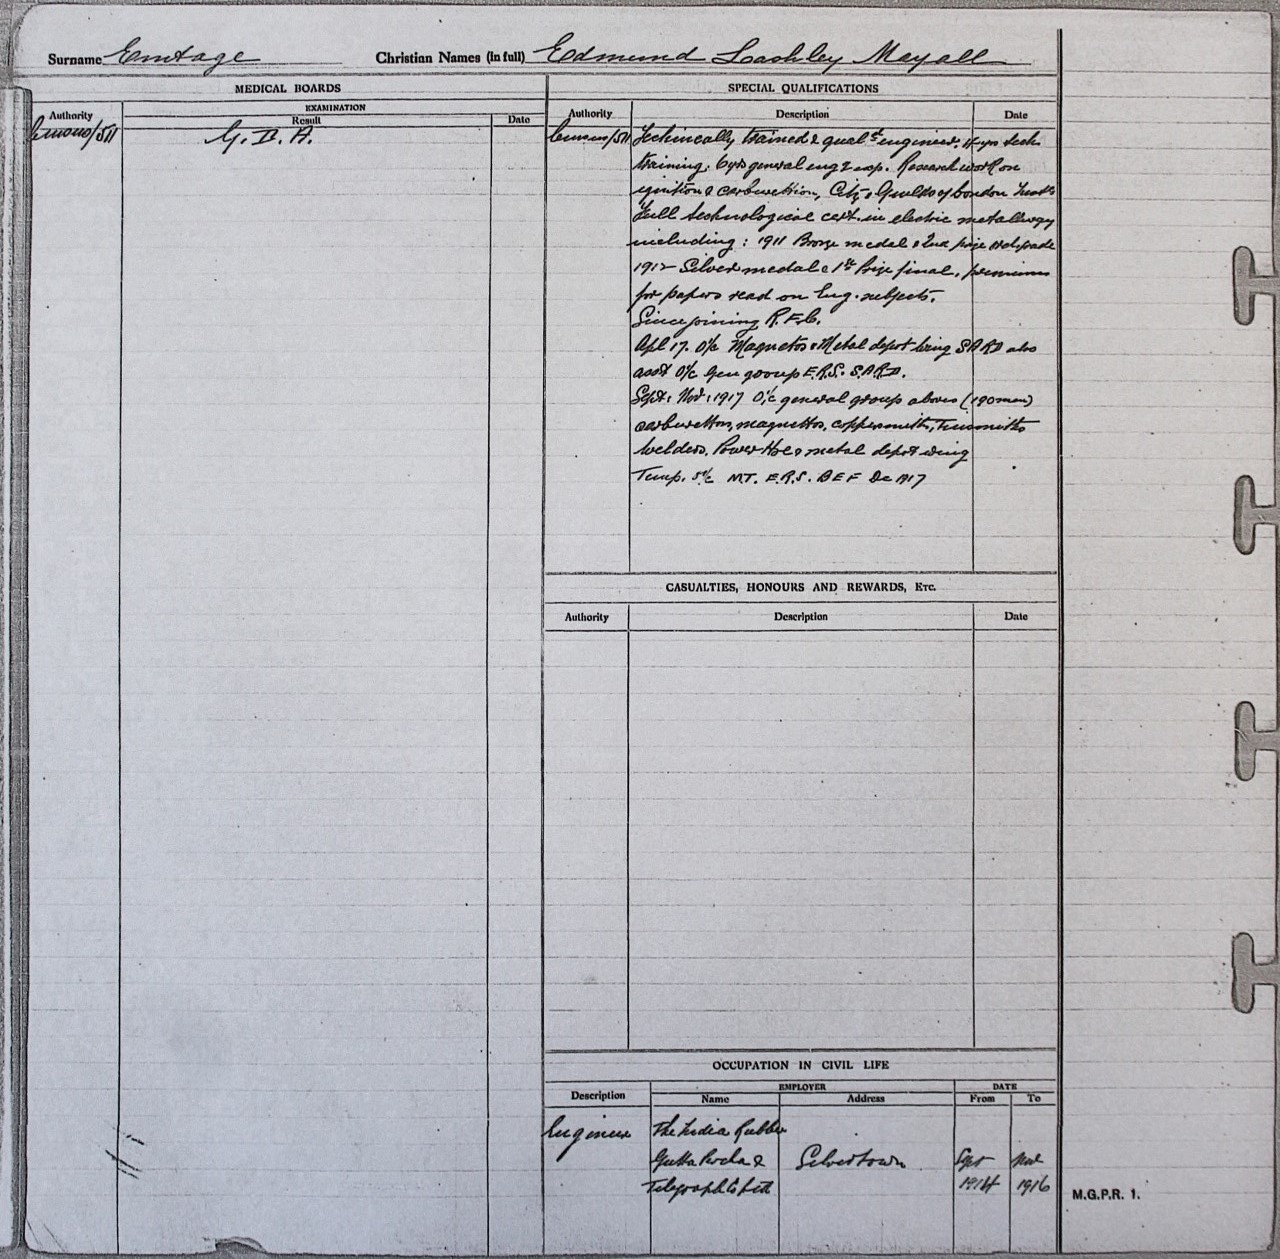 Surname Emtage Christian Names (in full) Edmund Lashley Mayall
MEDICAL BOARDS
Authority EXAMINATION
Result Date
Census/511 G. B. A.
SPECIAL QUALIFICATIONS
Authority Description Date
Census/511 Technically trained & qual^d engineer. 4 yrs tech.
training. 6 yrs general eng^g exp. Research work on
ignition & carburettion, City & Guilds of London Insts
Full technological cert. in electric metallurgy
including: 1911 Bronze medal & 2nd prize
1912 Silver medal & 1st Prize final, premiums
for papers read on Eng. subjects.
Since joining R.F.C.
Apl 17. O/c Magnetos & Metal depot wing S.A.R.D also
asst O/c Gen group E.R.S. S.A.R.D.
Sept: Nov: 1917 O/c general group above (190 men)
carburettors, magnettos, coppersmiths, Tinsmiths
Welders, Power Hse & metal depot wing
Temp. M.T. E.R.S. B E F Dec 1917
CASUALTIES, HONOURS AND REWARDS, ETC.
Authority Description Date
OCCUPATION IN CIVIL LIFE
Description EMPLOYER DATE
Name Address From To
Engineer The India Rubber
Gutta Percha & Silvertown Sept Nov
Telegraph Co Ltd 1914 1916
M.G.P.R. 1.